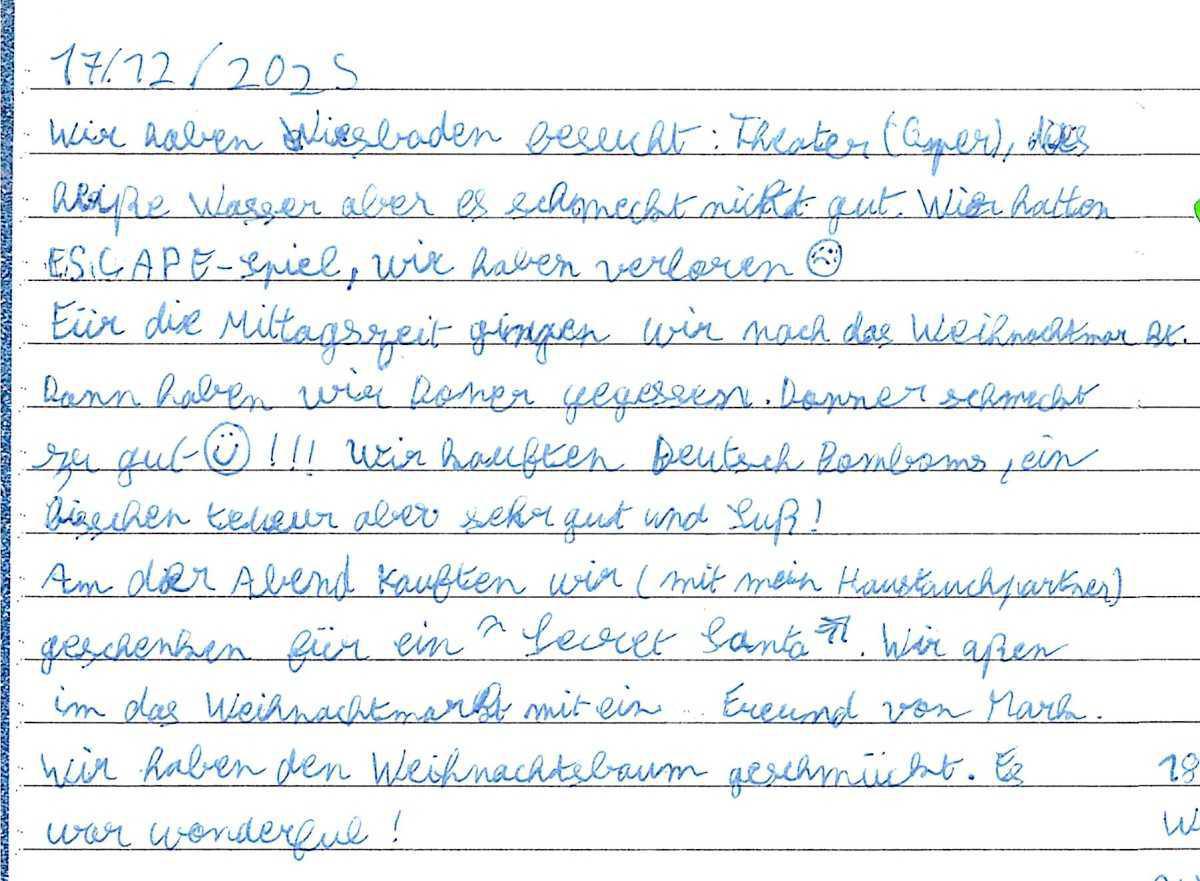 17/12/2025
Wir haben Wiesbaden besucht : Theater (Oper), das
heiße Wasser aber es schmeckt nicht gut. Wir hatten
ESCAPE-Spiel, wir haben verloren ☹
Für die Mittagszeit gingen wir nach das Weihnachtmarkt.
Dann haben wir Doner gegessen. Donner schmeckt
zu gut ☺ !!! Wir kauften Deutsch Bomboms, ein
bisschen teueur aber sehr gut und suß!
Am der Abend kauften wir (mit mein Haustauchpartner)
geschenken für ein " Secret Santa ". Wir aßen
im das Weihnachtmarkt mit ein Freund von Mark.
Wir haben den Weihnachtsbaum geschmückt. Es 18
war wonderful ! W